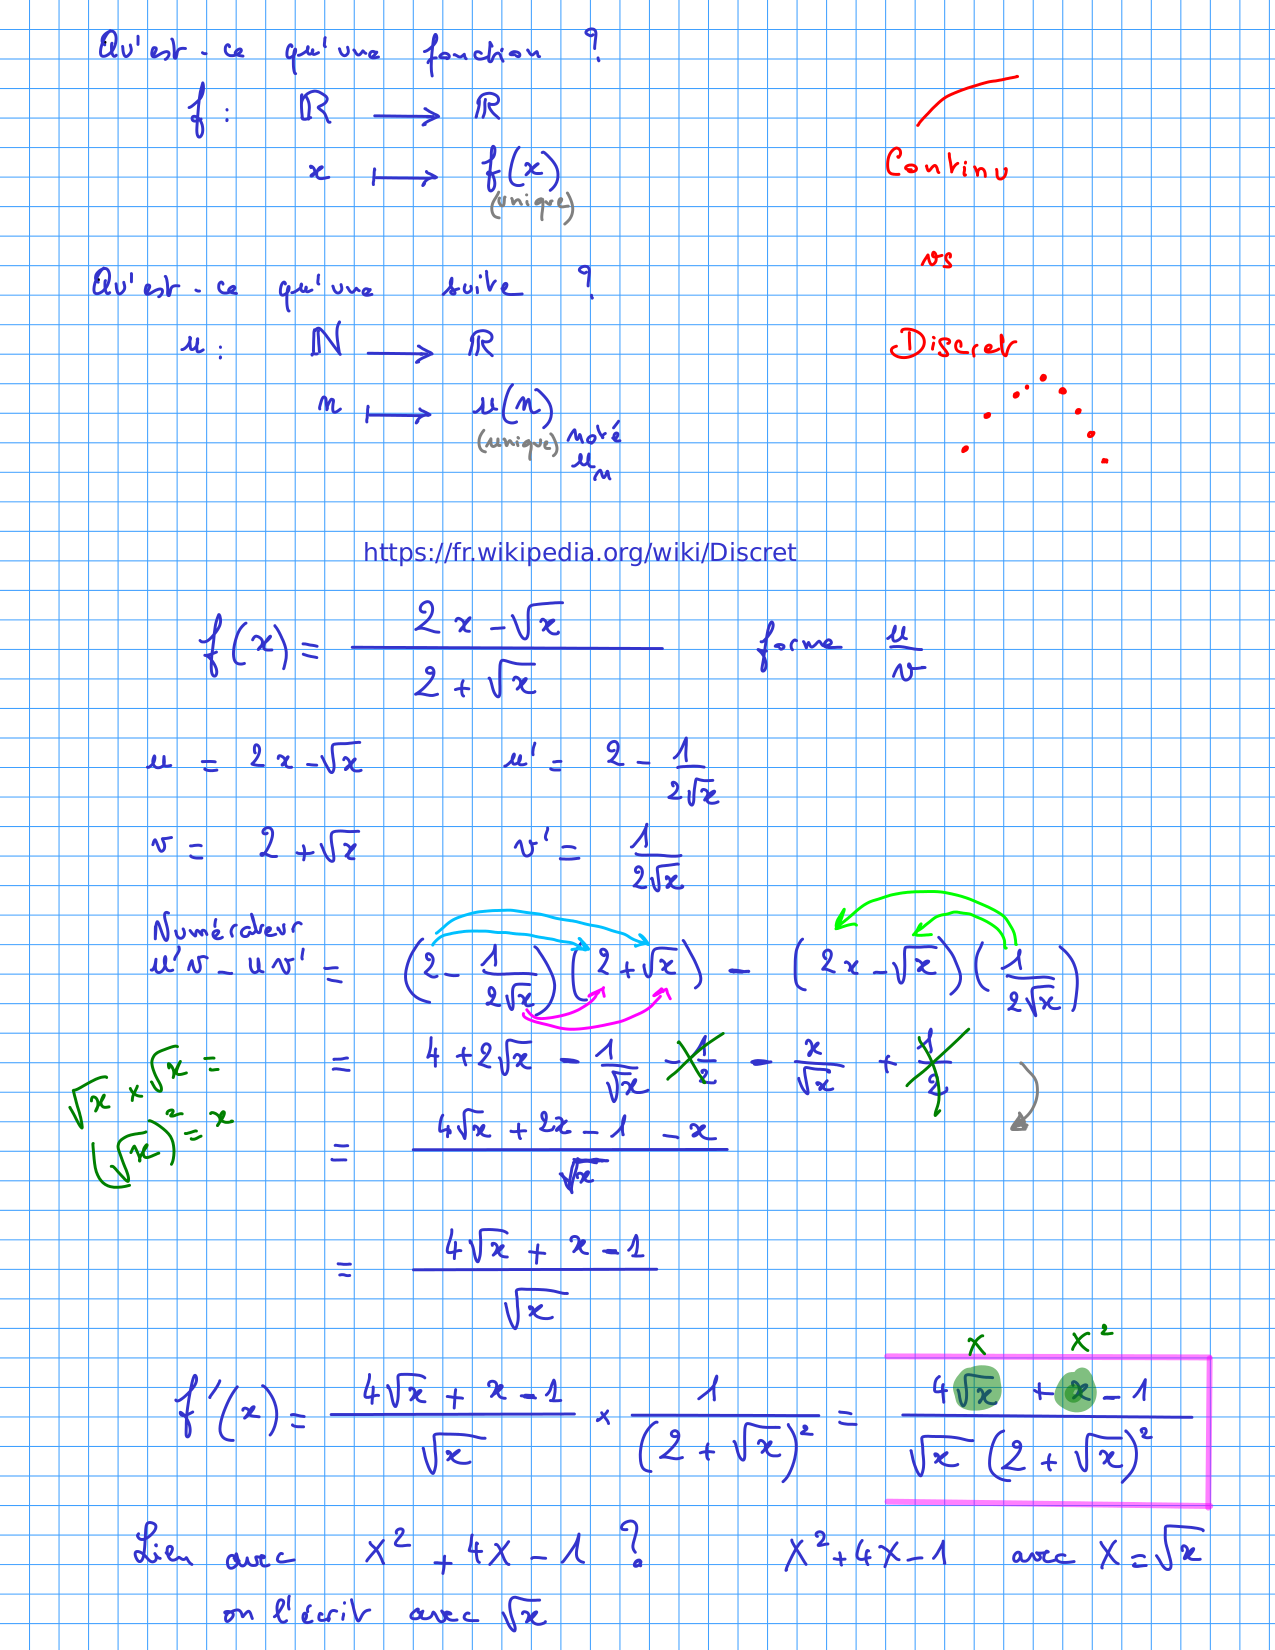 Qu'est-ce qu'une fonction ?
f : ℝ ⟶ ℝ
x ⟼ f(x)
(unique)
Continu
vs
Discret
Qu'est-ce qu'une suite ?
u : ℕ ⟶ ℝ
n ⟼ u(n)
(unique) noté
u_n
https://fr.wikipedia.org/wiki/Discret
f(x) = (2x - √x) / (2 + √x) forme u/v
u = 2x - √x u' = 2 - 1/(2√x)
v = 2 + √x v' = 1/(2√x)
Numérateur
u'v - uv' = (2 - 1/(2√x)) (2 + √x) - (2x - √x) (1/(2√x))
= 4 + 2√x - 1/√x - 1/2 - x/√x + 1/2
√x × √x =
(√x)² = x
= (4√x + 2x - 1 - x) / √x
= (4√x + x - 1) / √x
X X²
f'(x) = (4√x + x - 1)/√x × 1/(2 + √x)² = (4√x + x - 1) / (√x (2 + √x)²)
Lien avec X² + 4X - 1 ? X² + 4X - 1 avec X = √x
on l'écrit avec √x